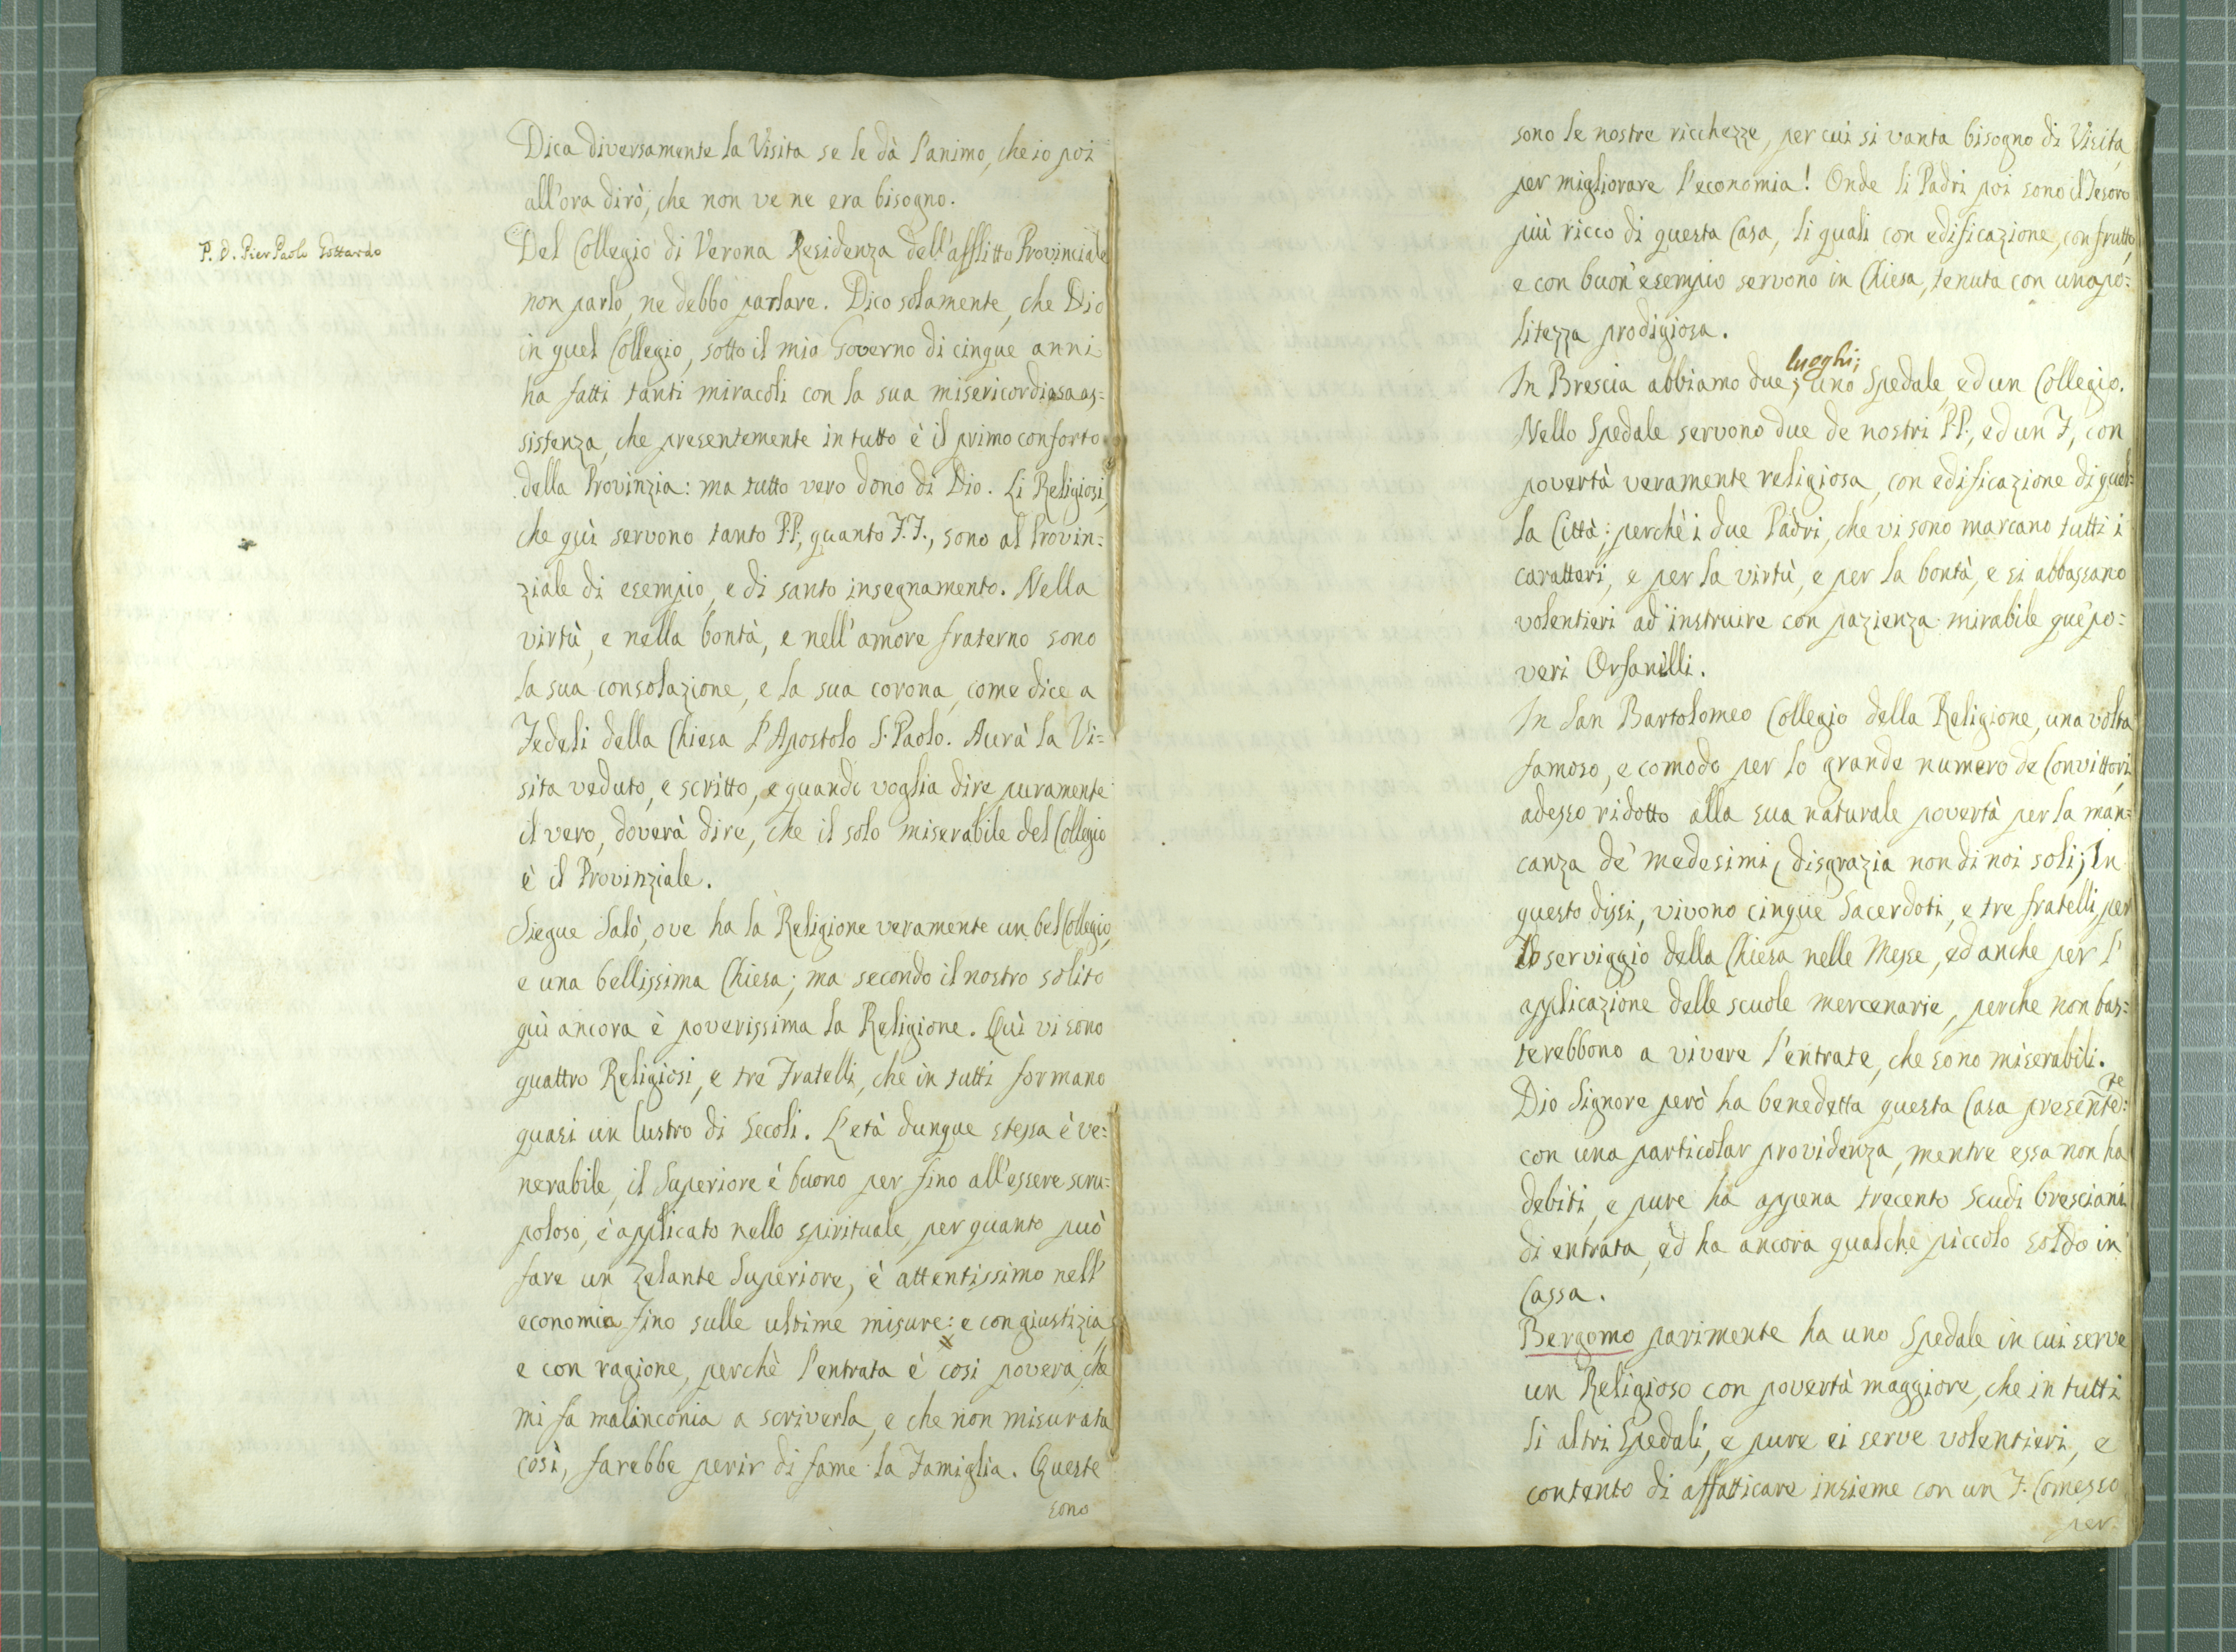 Dica diversamente la Visita se le dà l'animo, che io poi
all'ora dirò, che non ve ne era bisogno.
P. D. Pier Paolo Gottardo
Del Collegio di Verona Residenza dell'afflitto Provinciale
non parlo, ne debbo parlare. Dico solamente, che Dio
in quel Collegio, sotto il mio Governo di cinque anni
ha fatti tanti miracoli con la sua misericordiosa as=
sistenza, che presentemente in tutto è il primo conforto
della Provinzia: ma tutto vero dono di Dio. Li Religiosi,
che quì servono tanto P.P., quanto F.F., sono al Provin=
ziale di esempio, e di santo insegnamento. Nella
virtù, e nella bontà, e nell'amore fraterno sono
la sua consolazione, e la sua corona, come dice a
Fedeli della Chiesa l'Apostolo S. Paolo. Aurà la Vi=
sita veduto, e scritto, e quando voglia dire puramente
il vero, doverà dire, che il solo miserabile del Collegio
è il Provinziale.
Siegue Salò, ove ha la Religione veramente un bel Collegio,
e una bellissima Chiesa; ma secondo il nostro solito
quì ancora è poverissima la Religione. Quì vi sono
quattro Religiosi, e tre Fratelli, che in tutti formano
quasi un lustro di Secoli. L'età dunque stessa è ve=
nerabile, il Superiore è buono per fino all'essere scru=
poloso, è applicato nello spirituale, per quanto può
fare un Zelante Superiore, è attentissimo nell'
economia fino sulle ultime misure: e con giustizia
e con ragione, perchè l'entrata è così povera, che
mi fa malinconia a scriverla, e che non misurata
così, farebbe perir di fame la Famiglia. Queste
sono
sono le nostre ricchezze, per cui si vanta bisogno di Visita,
per migliorare l'economia! Onde li Padri poi sono il Tesoro
più ricco di questa Casa, li quali con edificazione, con frutto,
e con buon'esempio servono in Chiesa, tenuta con una po=
litezza prodigiosa.
luoghi;
In Brescia abbiamo due; uno Spedale, ed un Collegio.
Nello Spedale servono due de nostri P.P., ed un F, con
povertà veramente religiosa, con edificazione di quel=
la Città; perchè i due Padri, che vi sono marcano tutti i
caratteri, e per la virtù, e per la bontà, e si abbassano
volentieri ad instruire con pazienza mirabile que' po=
veri Orfanelli.
In San Bartolomeo Collegio della Religione, una volta
famoso, e comodo per lo grande numero de Convittori,
adesso ridotto alla sua naturale povertà per la man=
canza de' medesimi, disgrazia non di noi soli; In
questo dissi, vivono cinque Sacerdoti, e tre fratelli, per
lo serviggio della Chiesa nelle Messe, ed anche per l'
applicazione delle scuole mercenarie, perche non bas=
terebbono a vivere l'entrate, che sono miserabili.
Dio Signore però ha benedetta questa Casa presente:te
con una particolar providenza, mentre essa non ha
debiti, e pure ha appena trecento Scudi bresciani
di entrata, ed ha ancora qualche piccolo soldo in
Cassa.
Bergomo parimente ha uno Spedale in cui serve
un Religioso con povertà maggiore, che in tutti
li altri Spedali, e pure ei serve volentieri, e
contento di affatticare insieme con un F. Comesso
per